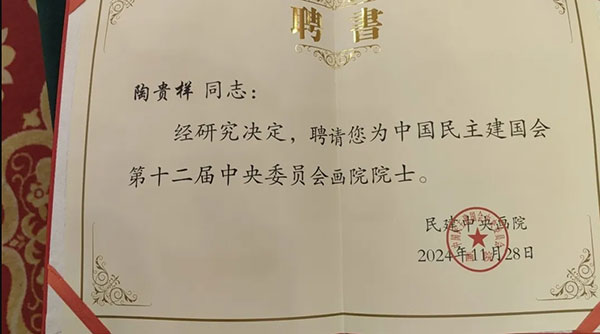 聘書
陶贵样 同志：
经研究决定，聘请您为中国民主建国会
第十二届中央委员会画院院士。
民建中央画院
2024年11月28日